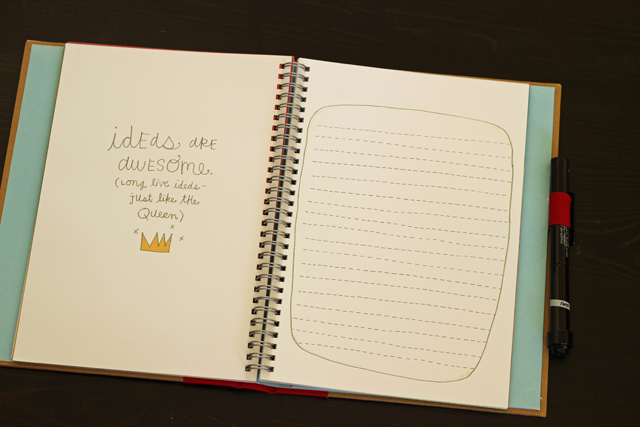 idEas ARE
aWESOME.
(Long live ideas-
just like the
Queen)